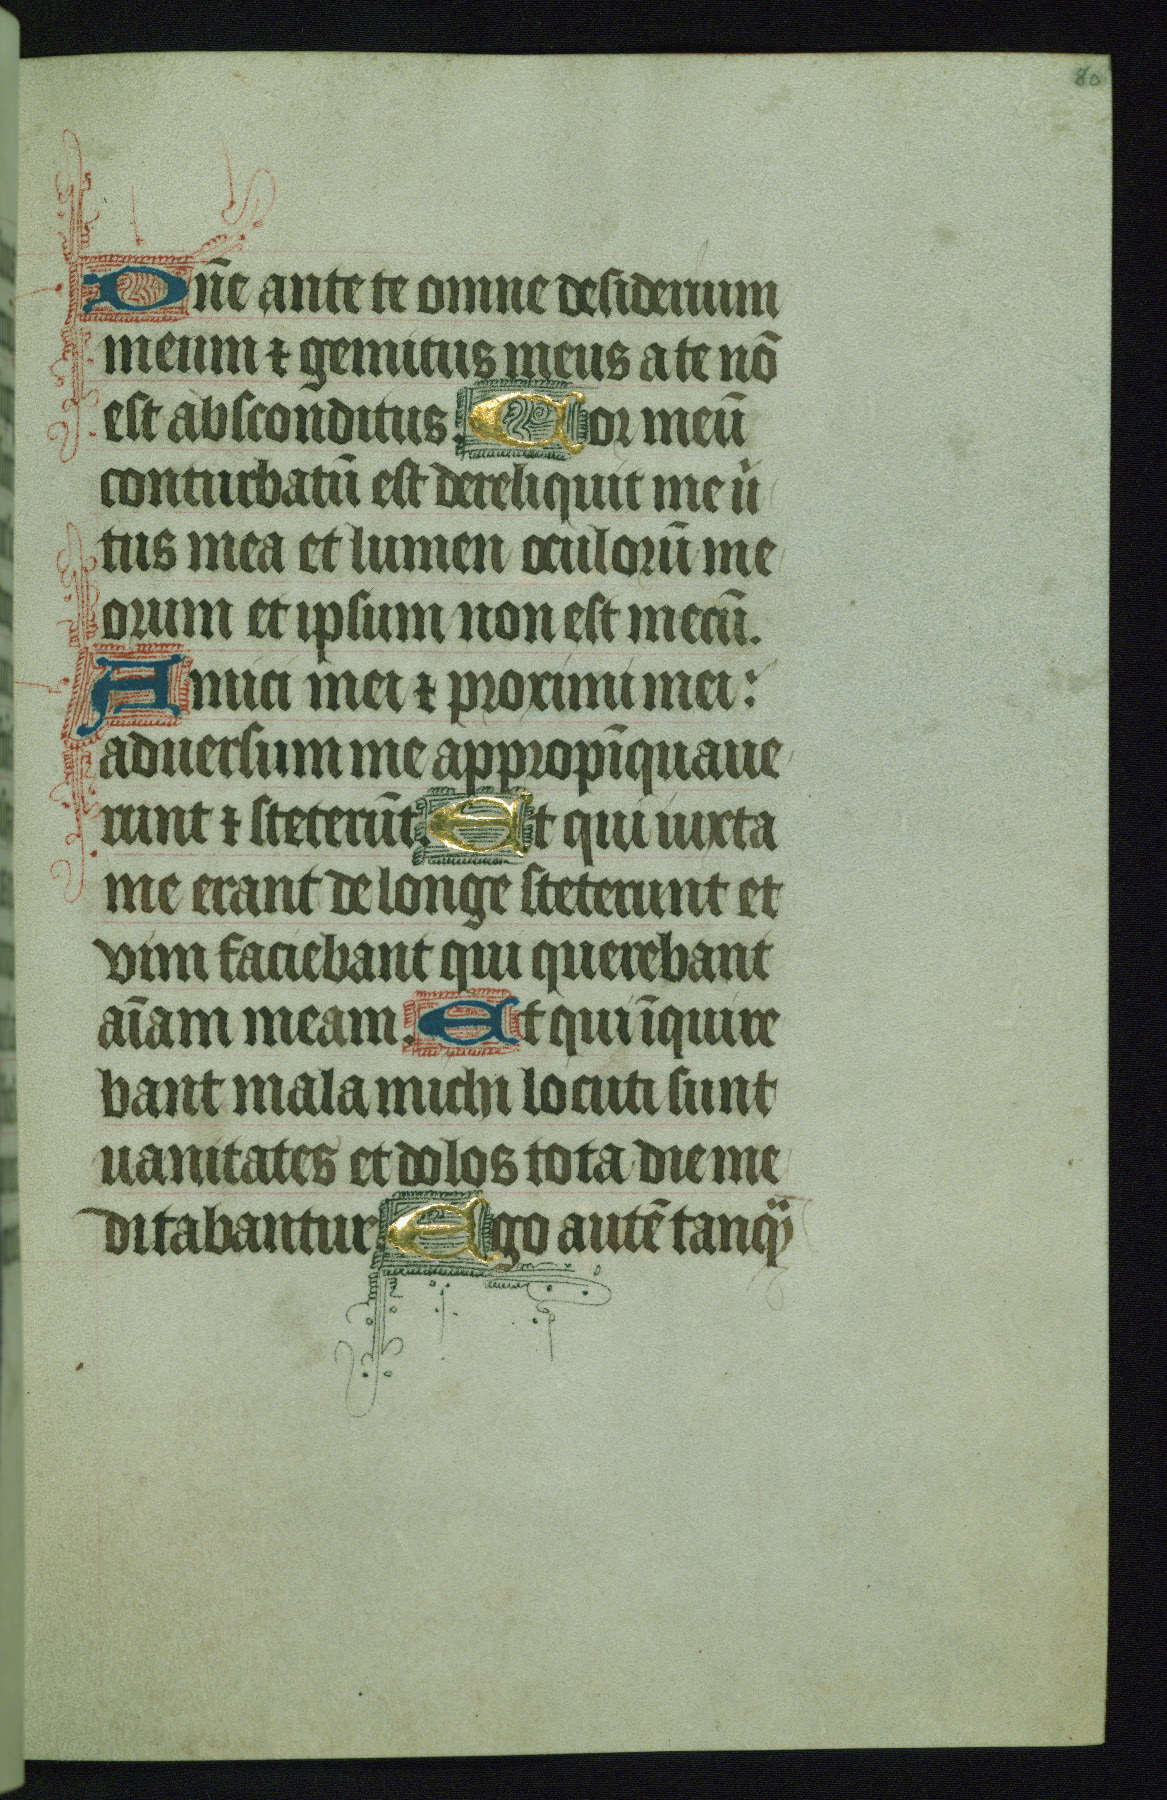 80
Dn̄e ante te omne desiderium
meum ⁊ gemitus meus a te nō
est absconditus. Cor meū
conturbatū est dereliquit me uˈ
tus mea et lumen oculorū me
orum et ipsum non est mecū.
Amici mei ⁊ proximi mei:
aduersum me appropīquaue
runt ⁊ steterūt. Et qui iuxta
me erant de longe steterunt et
vim faciebant qui querebant
aīam meam. Et qui īquire
bant mala michi locuti sunt
uanitates et dolos tota die me
ditabantur. Ego autē tanqᷓ